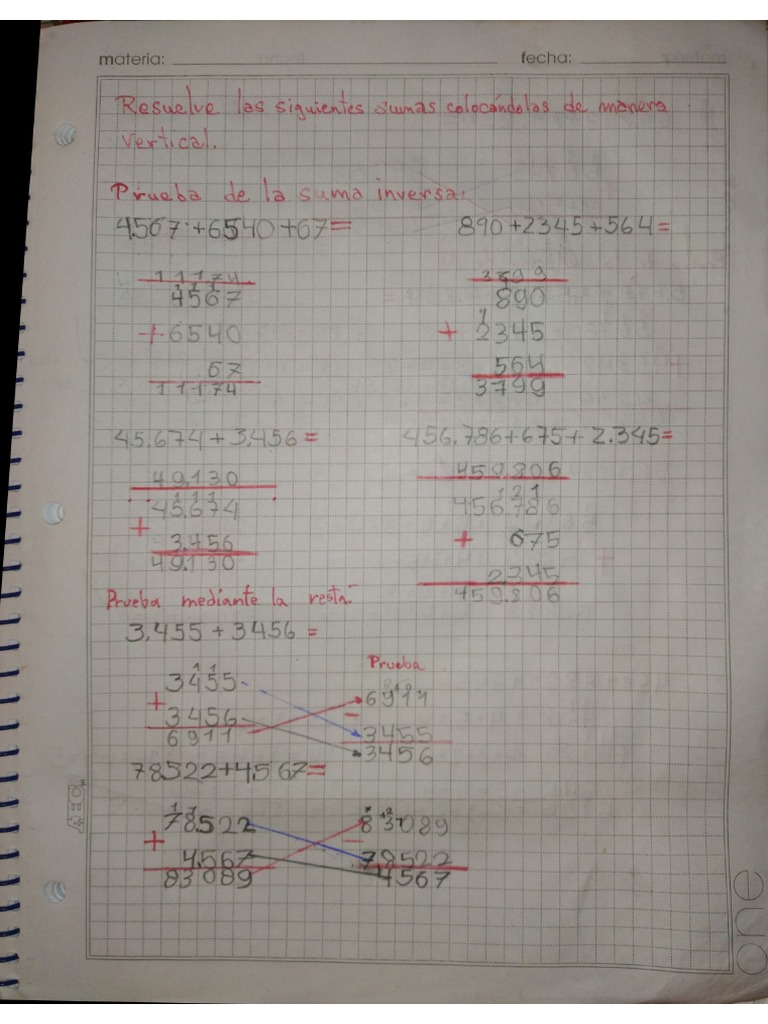 materia: fecha:
Resuelve las siguientes sumas colocándolas de manera
vertical.
Prueba de la suma inversa:
4.567+6540+67=
11174
4567
+6540
67
11174
890+2345+564=
3799
890
+ 2345
564
3799
45.674+3.456=
49.130
45.674
+
3.456
49.130
456.786+675+2.345=
459.806
456.786
+ 675
2345
459.806
Prueba mediante la resta:
3.455+3456=
3455
+
3456
6911
Prueba
6911
-
3455
3456
78.522+4.567=
78.522
+
4.567
83089
83089
-
78522
4567
one